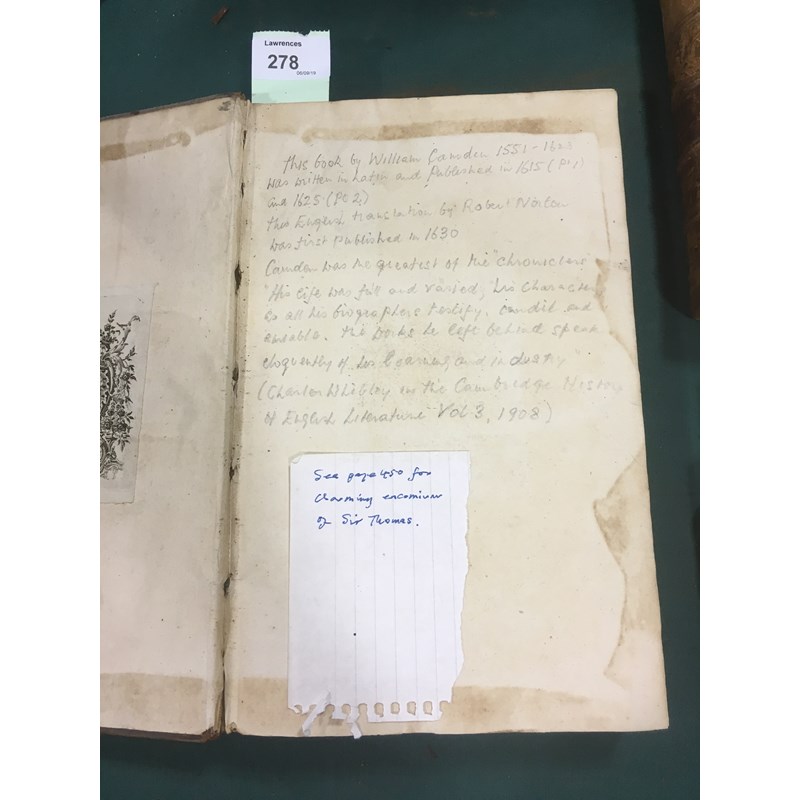 Lawrences
278
06/08/19
This book by William Camden 1551-1623
was written in Latin and Published in 1615 (Pt 1)
and 1625 (Pt 2)
This English translation by Robert Norton
was first published in 1630
Camden was the greatest of the "chroniclers"
"His life was full and varied, his character
so all his biographers testify, candid and
amiable. The works he left behind speak
eloquently of his learning and industry"
(Charles Whibley in the Cambridge History
of English Literature Vol 3, 1908)
See page 450 for
charming encomium
of Sir Thomas.